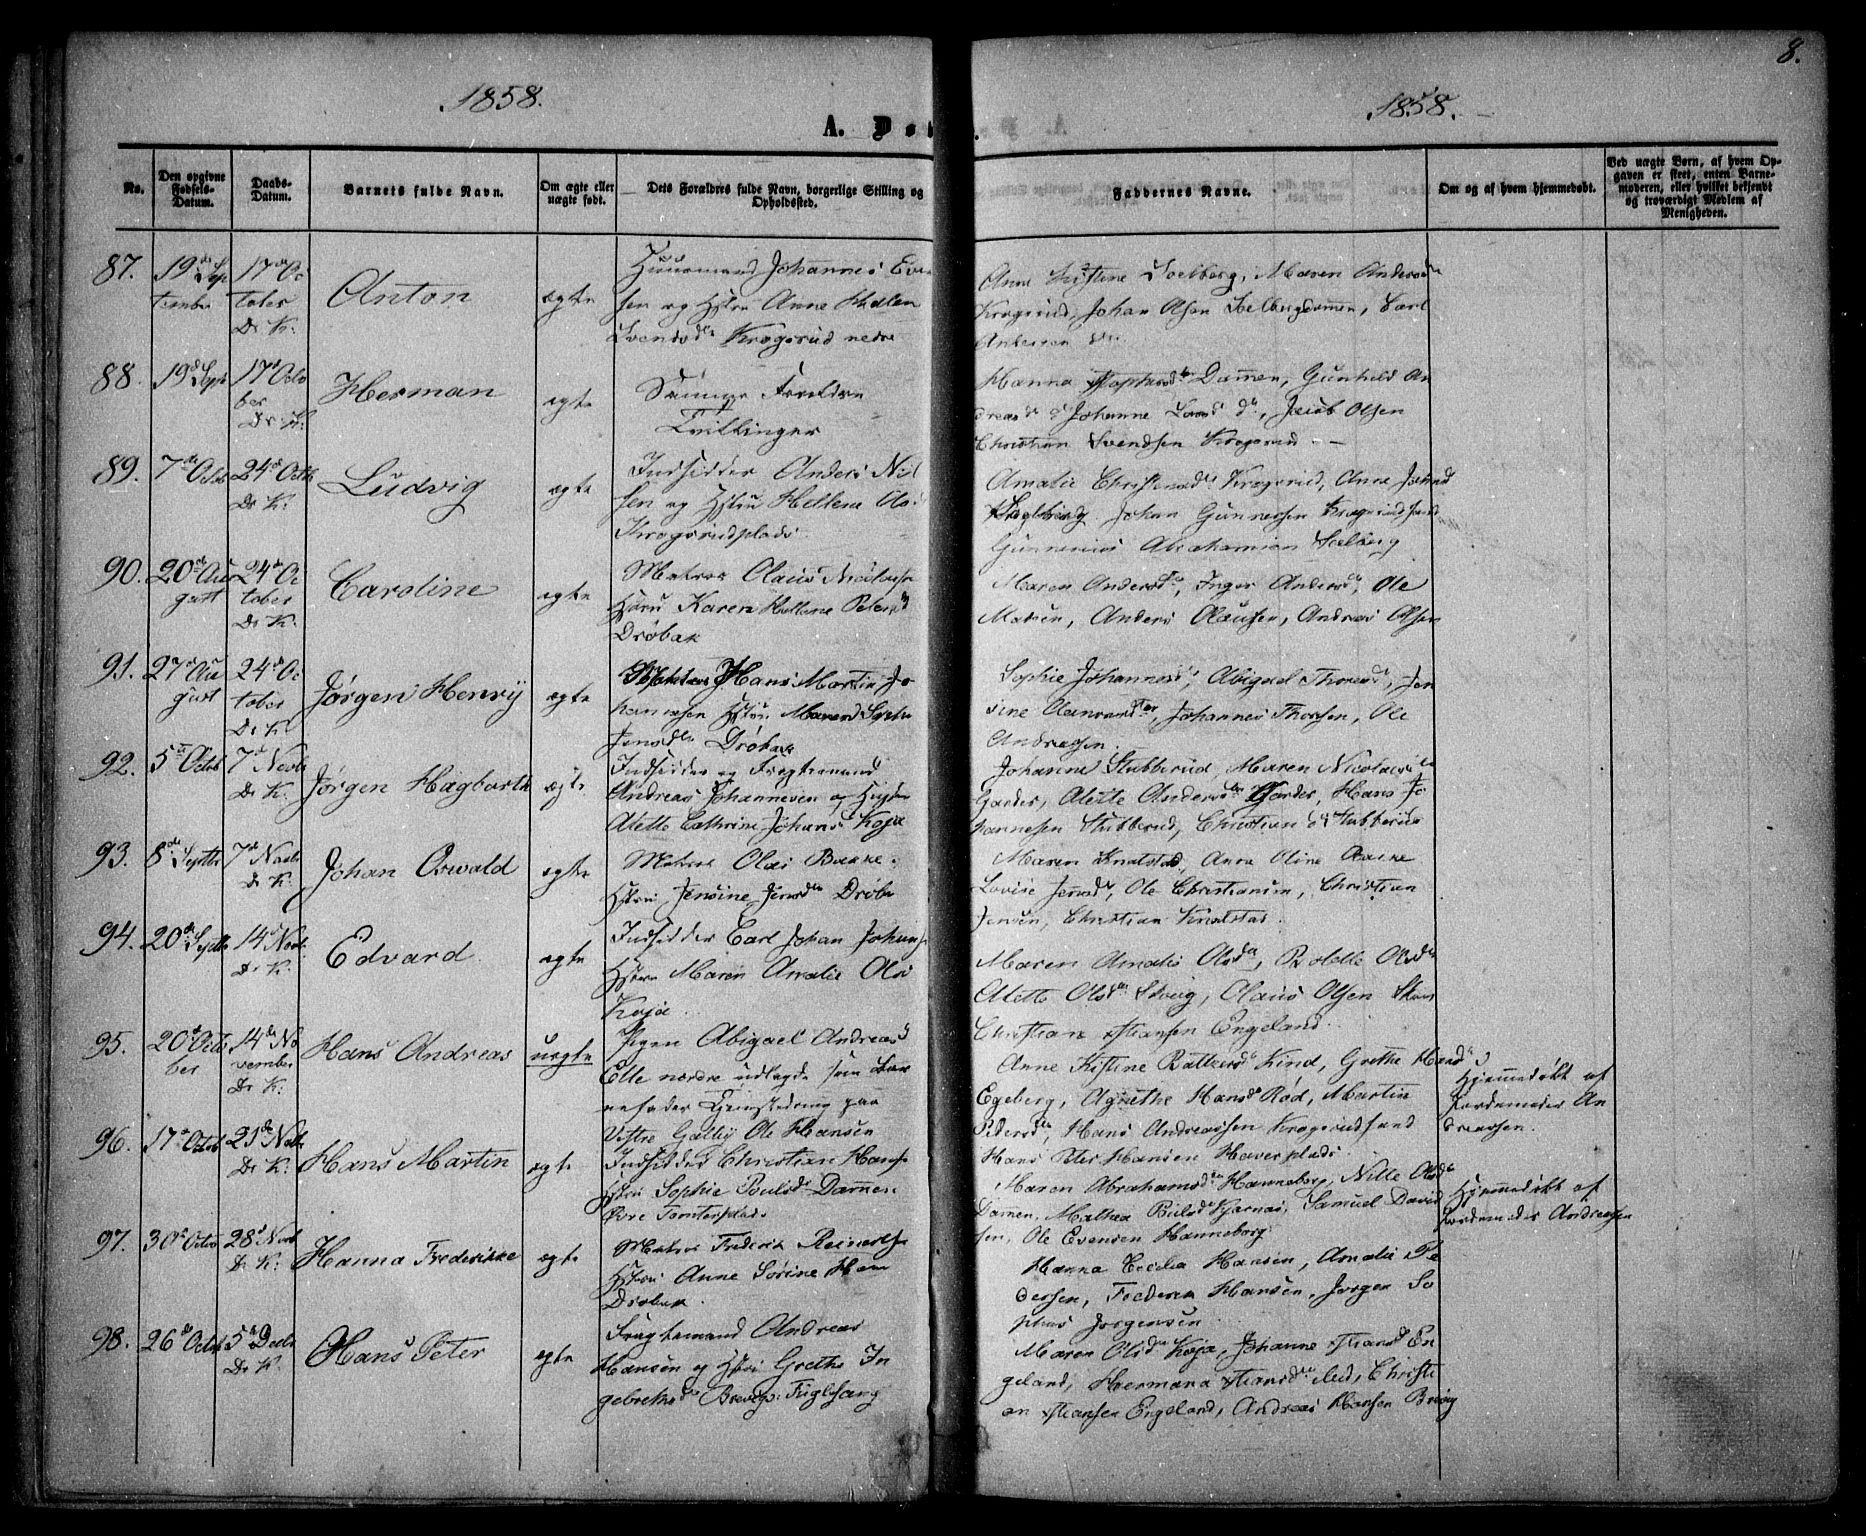 8.
1858.
1858.
A. Dø
No.
Den opgivne Fødsels-Datum.
Daabs-Datum.
Barnets fulde Navn.
Om ægte eller uægte født.
Dets Forældres fulde Navn, borgerlige Stilling og Opholdssted.
Faddernes Navne.
Om og af hvem hjemmedøbt.
Ved uægte Børn, af hvem Opgaven er skeet, enten Barnemoderen, eller hvilket bekjendt og troværdigt Medlem af Menigheden.
87. 19de Sep 17de Oc
tember tober Anton ægte
Dr. K.
Huusmand Johannes Even
sen og Hstru Anne Hellen
Svendsdtr Krogsrud nedre
Anne Kristine Solberg, Maren Andersdtr
Krogsrud, Johan Olsen Solbergdammen, Carl
Andersen
88. 19d Sept 17d Octo
ber Herman ægte
Dr. K.
Samme Forældre
Tvillinger
Hanna Dammen, Gunhild An
dreasd Johanne Larsd do, Jacob Olsen
Christian Svendsen Krogsrud
89. 7de Octob 24d Octb
Dr K. Ludvig ægte
Indsidder Anders Niel
sen og Hstru Hellene Ols
Krogsrudplads
Amalie Christensd Krogsrud, Anne Johansd
Johan Gunnersen Krogsrudsand
Gunnerius Abrahamsen Solberg
90. 20de Au 24d Oc
gust tober Caroline ægte
Dr K.
Matros Olaus Nicolaysen
Hstru Karen Hellene Petersd
Drøbak
Maren Andersdtr, Inger Andersd, Ole
Madsen, Anders Olausen, Andreas Olsen
91. 27de Au 24d Oc
gust tober Jørgen Henry ægte
Dr K
Hans Martin Jo
hannesen Hstru Maren
Jensdtr Drøbak
Sophie Johannesd, Abigael Thoresd, Jen
sine Johannes Thorsen, Ole
Andreassen.
92. 5te Octob 7d Novb
Dr K. Jørgen Hagbarth ægte
Indsidder og Fragtemand
Andreas Johannesen og Hustru
Alette Cathrine Johansd Kaja
Johanne Stubberud, Maren Nicolaisdtr
Garder, Alette Andersdtr Garder, Hans Jo
hannesen Stubberud, Christian Stubberud
93. 8de Septbr 7d Novb
Dr K. Johan Oswald ægte
Matros Olai Bakke.
Hstru Jensine Jensdtr Drøba
Maren Knatstad, Anne Oline Bakke
Lovise Jensd, Ole Christiansen, Christian
Jensen, Christian Knatstad.
94. 20de Septb 14d Novb.
Dr K. Edvard ægte
Indsidder Carl Johan Johans
Hstru Maren Amalie Olsd
Kaja
Maren Amalie Olsdtr, Olsdtr
Alette Olsdtr Skoug, Olaus Olsen
Christian Engeland.
95. 20d Octo 14de No
ber vember Hans Andreas uægte
Dr K.
Pigen Abigael Andreasd
Elle nordre udlagde som Bar
nefader paa
Vestre Galby Ole Hansen
Anne Kistine Kind, Grethe Hansd
Egeberg, Agnethe Hansd Rød, Martin
Hans Andreassen Krogsrudsand
Hans Peter Hansen Haverplads.
Hjemmedøbt af
Jordemoder An
dreassen.
96. 17d Octob 21de Novb
Dr K. Hans Martin ægte
Indsidder Christian Hans
Hstru Sophie Poulsd Dammen
Øvre
Maren Abrahamsd Hanneborg, Nille Olsdtr
Dammen, Mathea Kjærnæs, Samuel David
sen, Ole Evensen Hanneborg
Hjemmedøbt af
Jordemoder Andreassen
97. 30d Octo 28d Novb
Dr K. Hanna Frederikke ægte
Matros Frederik Reinerts
Hstru Anne Sørine
Drøbak.
Hanna Cecilia Hansen, Amalie Pe
dersen, Frederik Hansen, Jørgen So
phus Jørgensen
98. 26de Octob 5d Decb
Dr K. Hans Peter ægte
Fragtemand Andreas
Hansen og Hstru Grethe In
gebretsd Fuglesang
Maren Olsd Kaja, Johanne En
geland, Hermana Christi
an Engeland, Andreas Hansen